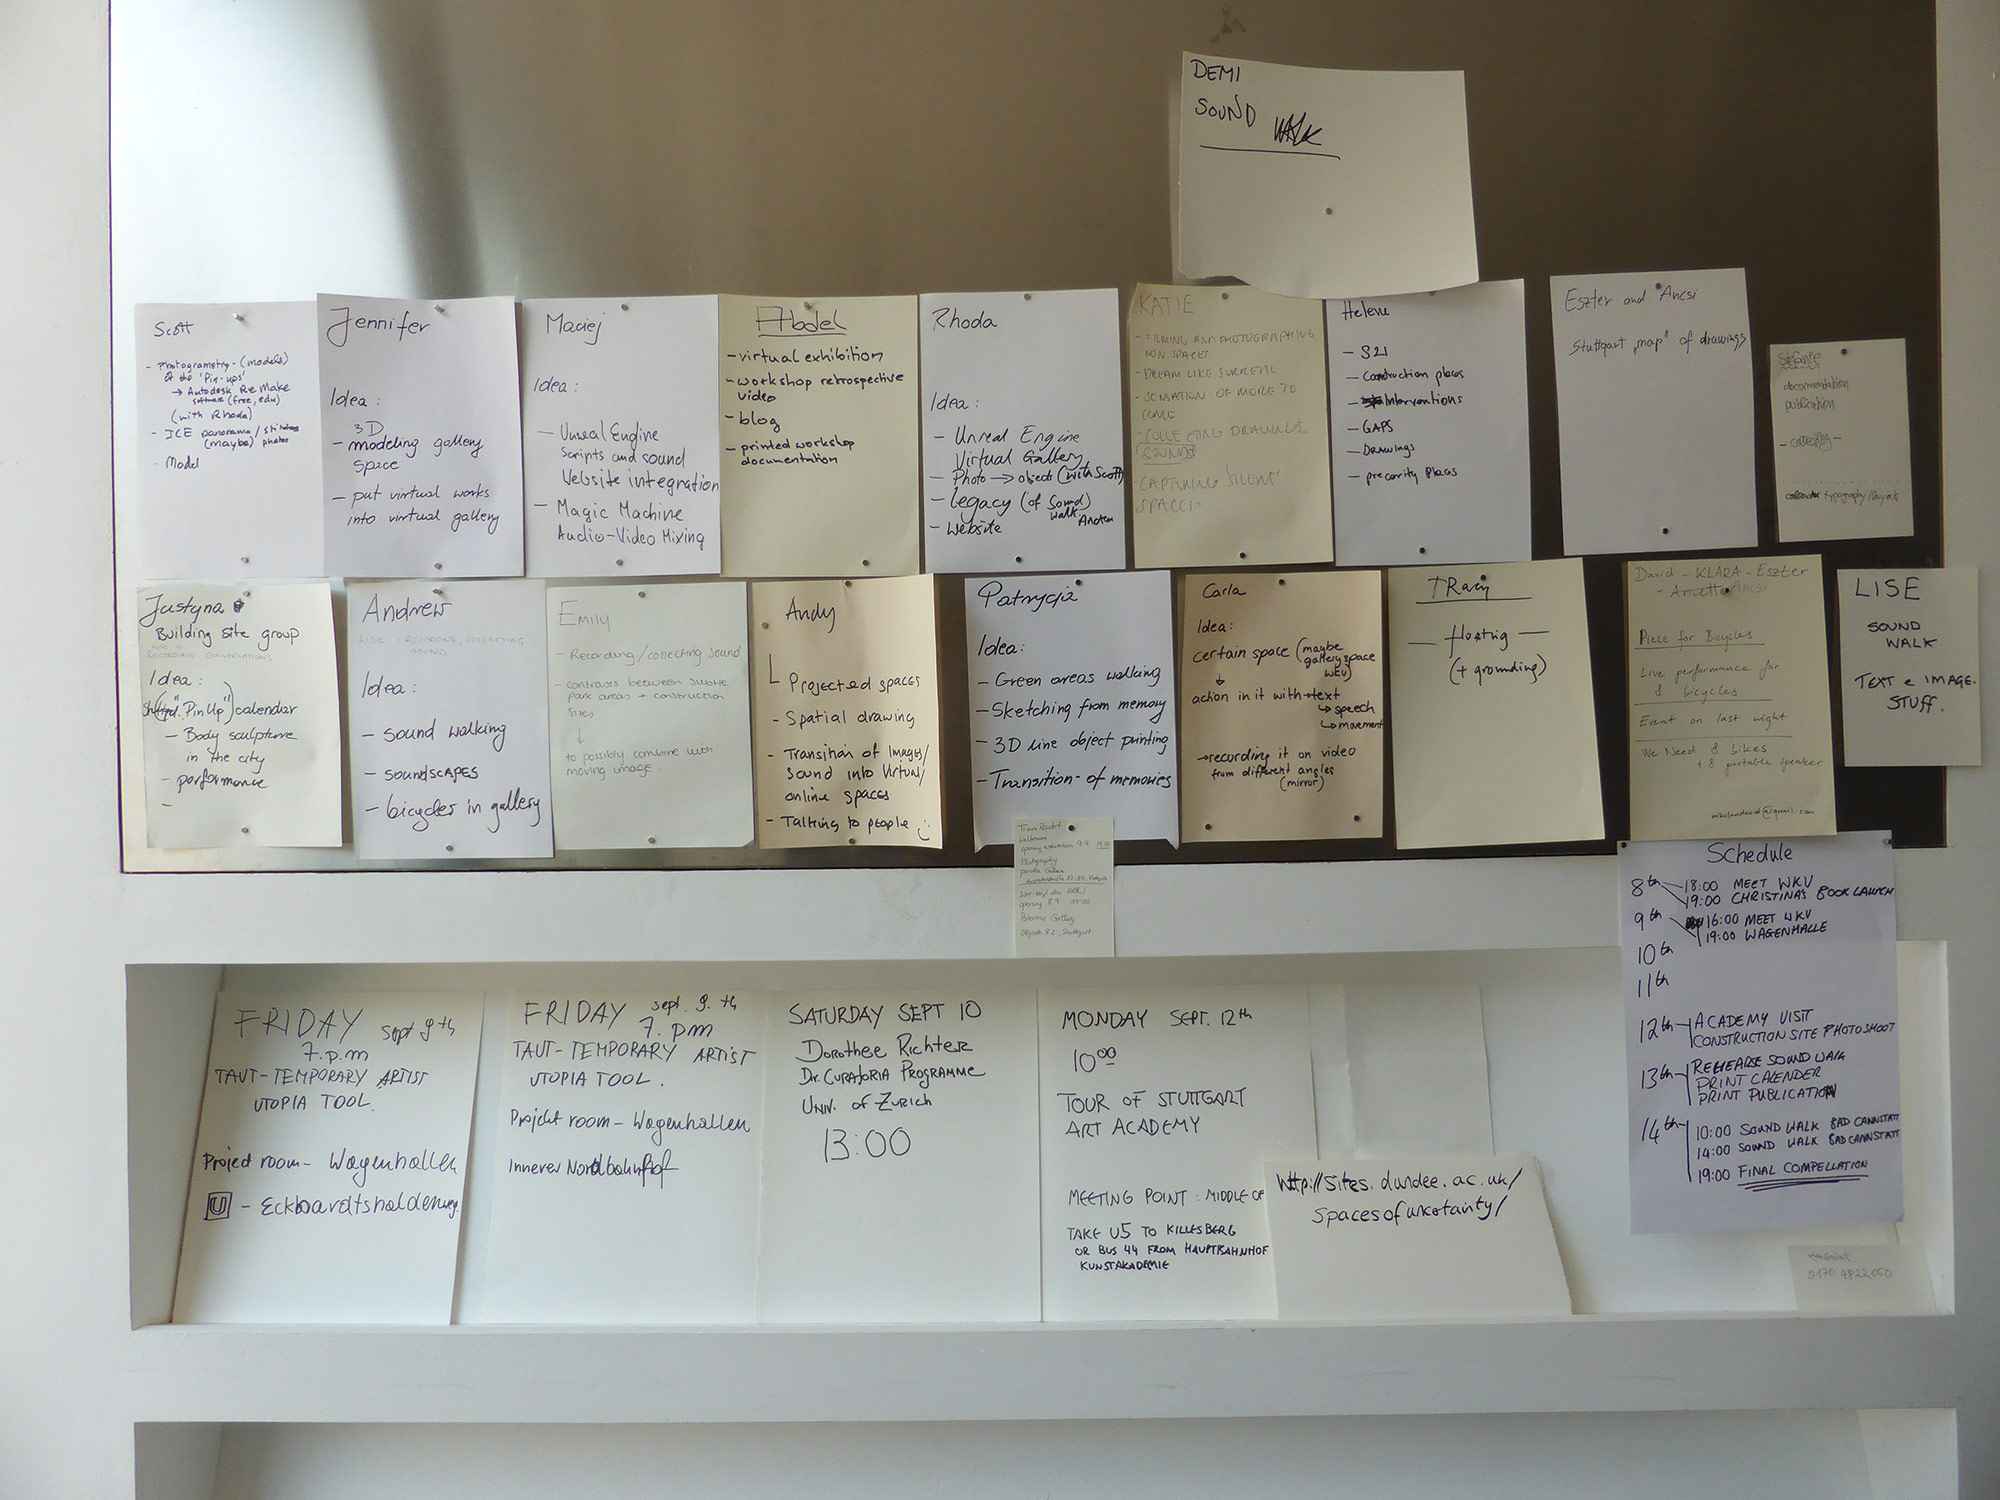 DEMI
SOUND
WALK
Scott
- Photogrametry - (models)
of the 'Pin-ups'
→ Autodesk ReMake
software (free, edu)
(with Rhoda)
- ICE panorama/ stitches
(maybe) photos
- Model
Jennifer
Idea :
3D
- modeling gallery
space
- put virtual works
into virtual gallery
Maciej
Idea :
- Unreal Engine
Scripts and sound
Website integration
- Magic Machine
Audio-Video Mixing
Abdel
- virtual exhibition
- workshop retrospective
video
- blog
- printed workshop
documentation
Rhoda
Idea :
- Unreal Engine
Virtual Gallery
- Photo → object (with Scott)
- Legacy (of Sound)
walk
- Website
KATIE
- FILMING AND PHOTOGRAPHING
NON SPACES
- DREAM LIKE SURREAL
OF MORE TO
COME
- COLLECTING DRAWINGS
SOUNDS
- CAPTURING 'SILENT'
SPACES.
Helene
- S21
- Construction places
- Interventions
- GAPS
- DRAWINGS
- precarity places
Eszter and Ancsi
Stuttgart „map" of drawings
Stefanie
documentation
publication
- collecting -
typography/layout
Justyna
Building site group
LISE
RECORDING CONVERSATIONS
Idea :
("Pin Up") calendar
- Body sculpture
in the city
- performance
-
Andrew
LISE - RECORDING, COLLECTING
SOUND
Idea :
- sound walking
- soundSCAPES
- bicycles in gallery
Emily
- Recording/collecting sound
- contrasts between subtle
park areas + construction
sites
↓
to possibly combine with
moving image.
Andy
Projected spaces
- Spatial drawing
- Transition of Images/
Sound into Virtual/
online spaces
- Talking to people :)
Patrycja
Idea :
- Green areas walking
- Sketching from memory
- 3D line object printing
- Transition of memories
Carla
Idea :
certain space (maybe
gallery space
WKV)
↓
action in it with → text
↳ speech
↳ movement
→ recording it on video
from different angles
(mirror)
TRacy
- floating -
(+ grounding)
David - KLARA - Eszter
- Ancsi
Piece for Bicycles
Live performance for
8 bicycles
Event on last night
We Need 8 bikes
+ 8 portable speaker
LISE
SOUND
WALK
TEXT e IMAGE.
STUFF.
opening exhibition 9.9. 19:00
Photography
opening 8.9. 19:00
Palermo Gallery
Stuttgart
Schedule
8th 18:00 MEET WKV
19:00 CHRISTINA'S BOOK LAUNCH
9th 16:00 MEET WKV
19:00 WAGENHALLE
10th
11th
12th ACADEMY VISIT
CONSTRUCTION SITE PHOTOSHOOT
13th REHEARSE SOUND WALK
PRINT CALENDER
PRINT PUBLICATION
14th 10:00 SOUND WALK BAD CANNSTATT
14:00 SOUND WALK BAD CANNSTATT
19:00 FINAL COMPELLATION
FRIDAY Sept 9 th
7. p.m
TAUT- TEMPORARY ARTIST
UTOPIA TOOL.
Project room - Wagenhallen
U - Eckhardtshaldenweg
FRIDAY sept. 9. th
7. pm
TAUT- TEMPORARY ARTIST
UTOPIA TOOL.
Projekt room - Wagenhallen
Innerer Nordbahnhof
SATURDAY SEPT 10
DOROTHEE RICHTER
Dr. CURATORIA PROGRAMME
UNIV. of ZURICH
13:00
MONDAY SEPT. 12th
10⁰⁰
TOUR OF STUTTGART
ART ACADEMY
MEETING POINT : MIDDLE OF
TAKE U5 TO KILLESBERG
OR BUS 44 FROM HAUPTBAHNHOF
KUNSTAKADEMIE
http://sites.dundee.ac.uk/
spacesofuncertainty/